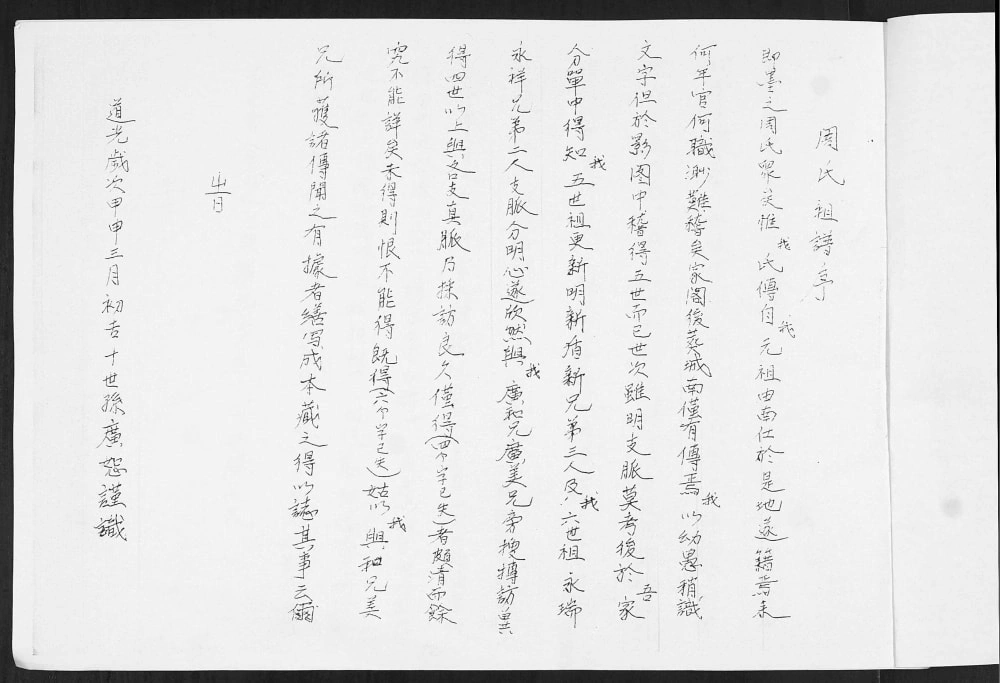 周氏祖譜序
即墨之周氏眾矣惟我氏傳自我元祖由南仕於是地遂籍焉未
何年官何職渺難稽矣家閣後葬城南僅有傳焉我以幼愚稍識
文字但於影图中稽得五世而已世次雖明支脈莫考後於吾家
分單中得知我五世祖更新明新盾新兄弟三人及我六世祖永瑞
永祥兄弟二人支脈分明心遂欣然與我廣和兄廣美兄旁搜摶訪異
得四世以上與各支真脈乃採訪良久僅得(四个字已失)者頗清而餘
究不能詳矣未得則恨不能得既得(六个字已失)姑以我與和兄美
兄所獲諸傳聞之有據者繕写成本藏之得以誌其事云爾
道光歲次甲申三月初吉十世孫廣恕謹識